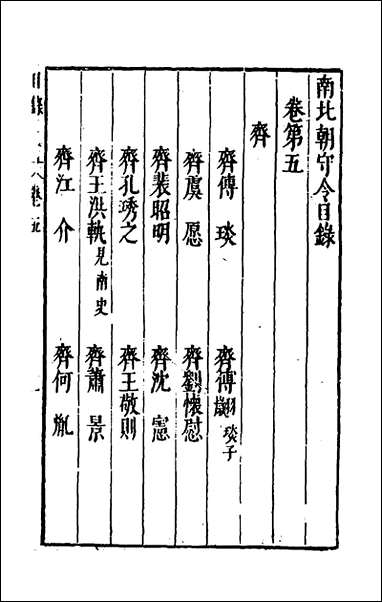 南北朝守令目錄
卷第五
齊
齊傅琰 齊傅翽琰子
齊虞愿 齊劉懷慰
齊裴昭明 齊沈憲
齊孔琇之 齊王敬則
齊王洪軌見南史 齊蕭景
齊江介 齊何胤